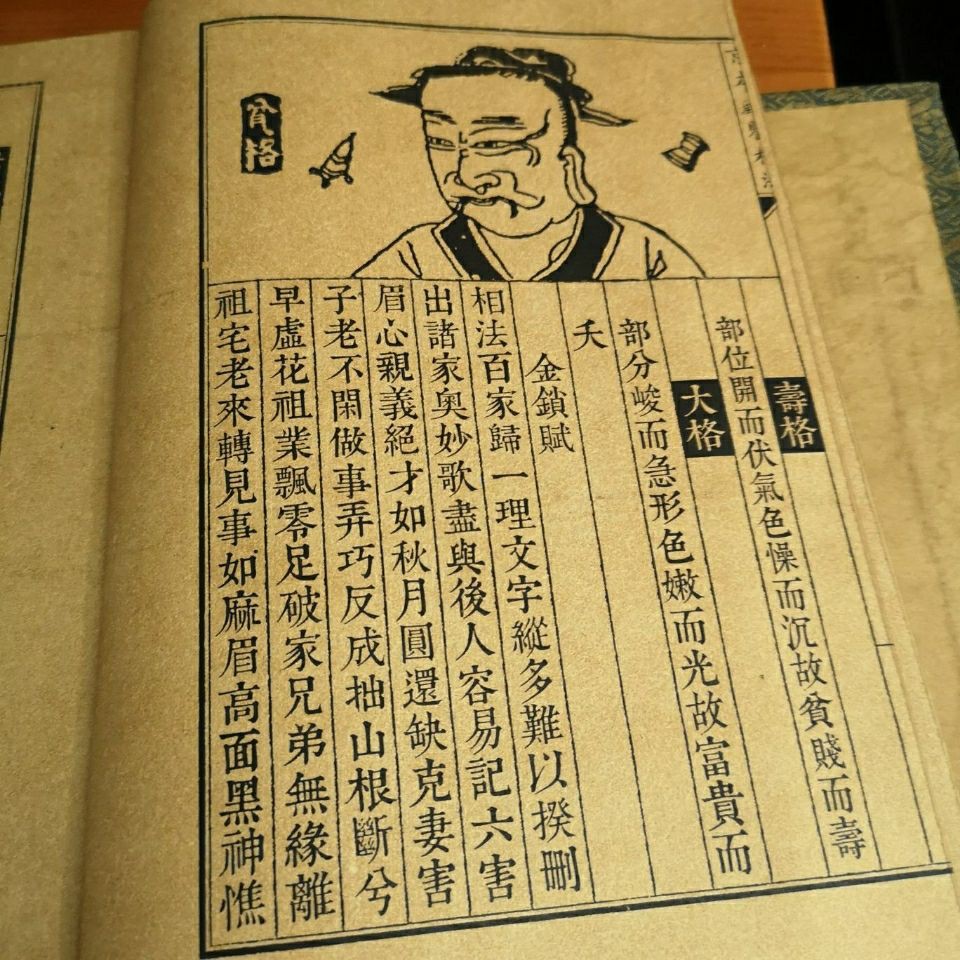 貧格
壽格
部位開而伏氣色懆而沉故貧賤而壽
大格
部分峻而急形色嫩而光故富貴而
夭
金鎖賦
相法百家歸一理文字縱多難以揆刪
出諸家奧妙歌盡與後人容易記六害
眉心親義絕才如秋月圓還缺克妻害
子老不閑做事弄巧反成拙山根斷兮
早虛花祖業飄零足破家兄弟無緣離
祖宅老來轉見事如麻眉高面黑神憔